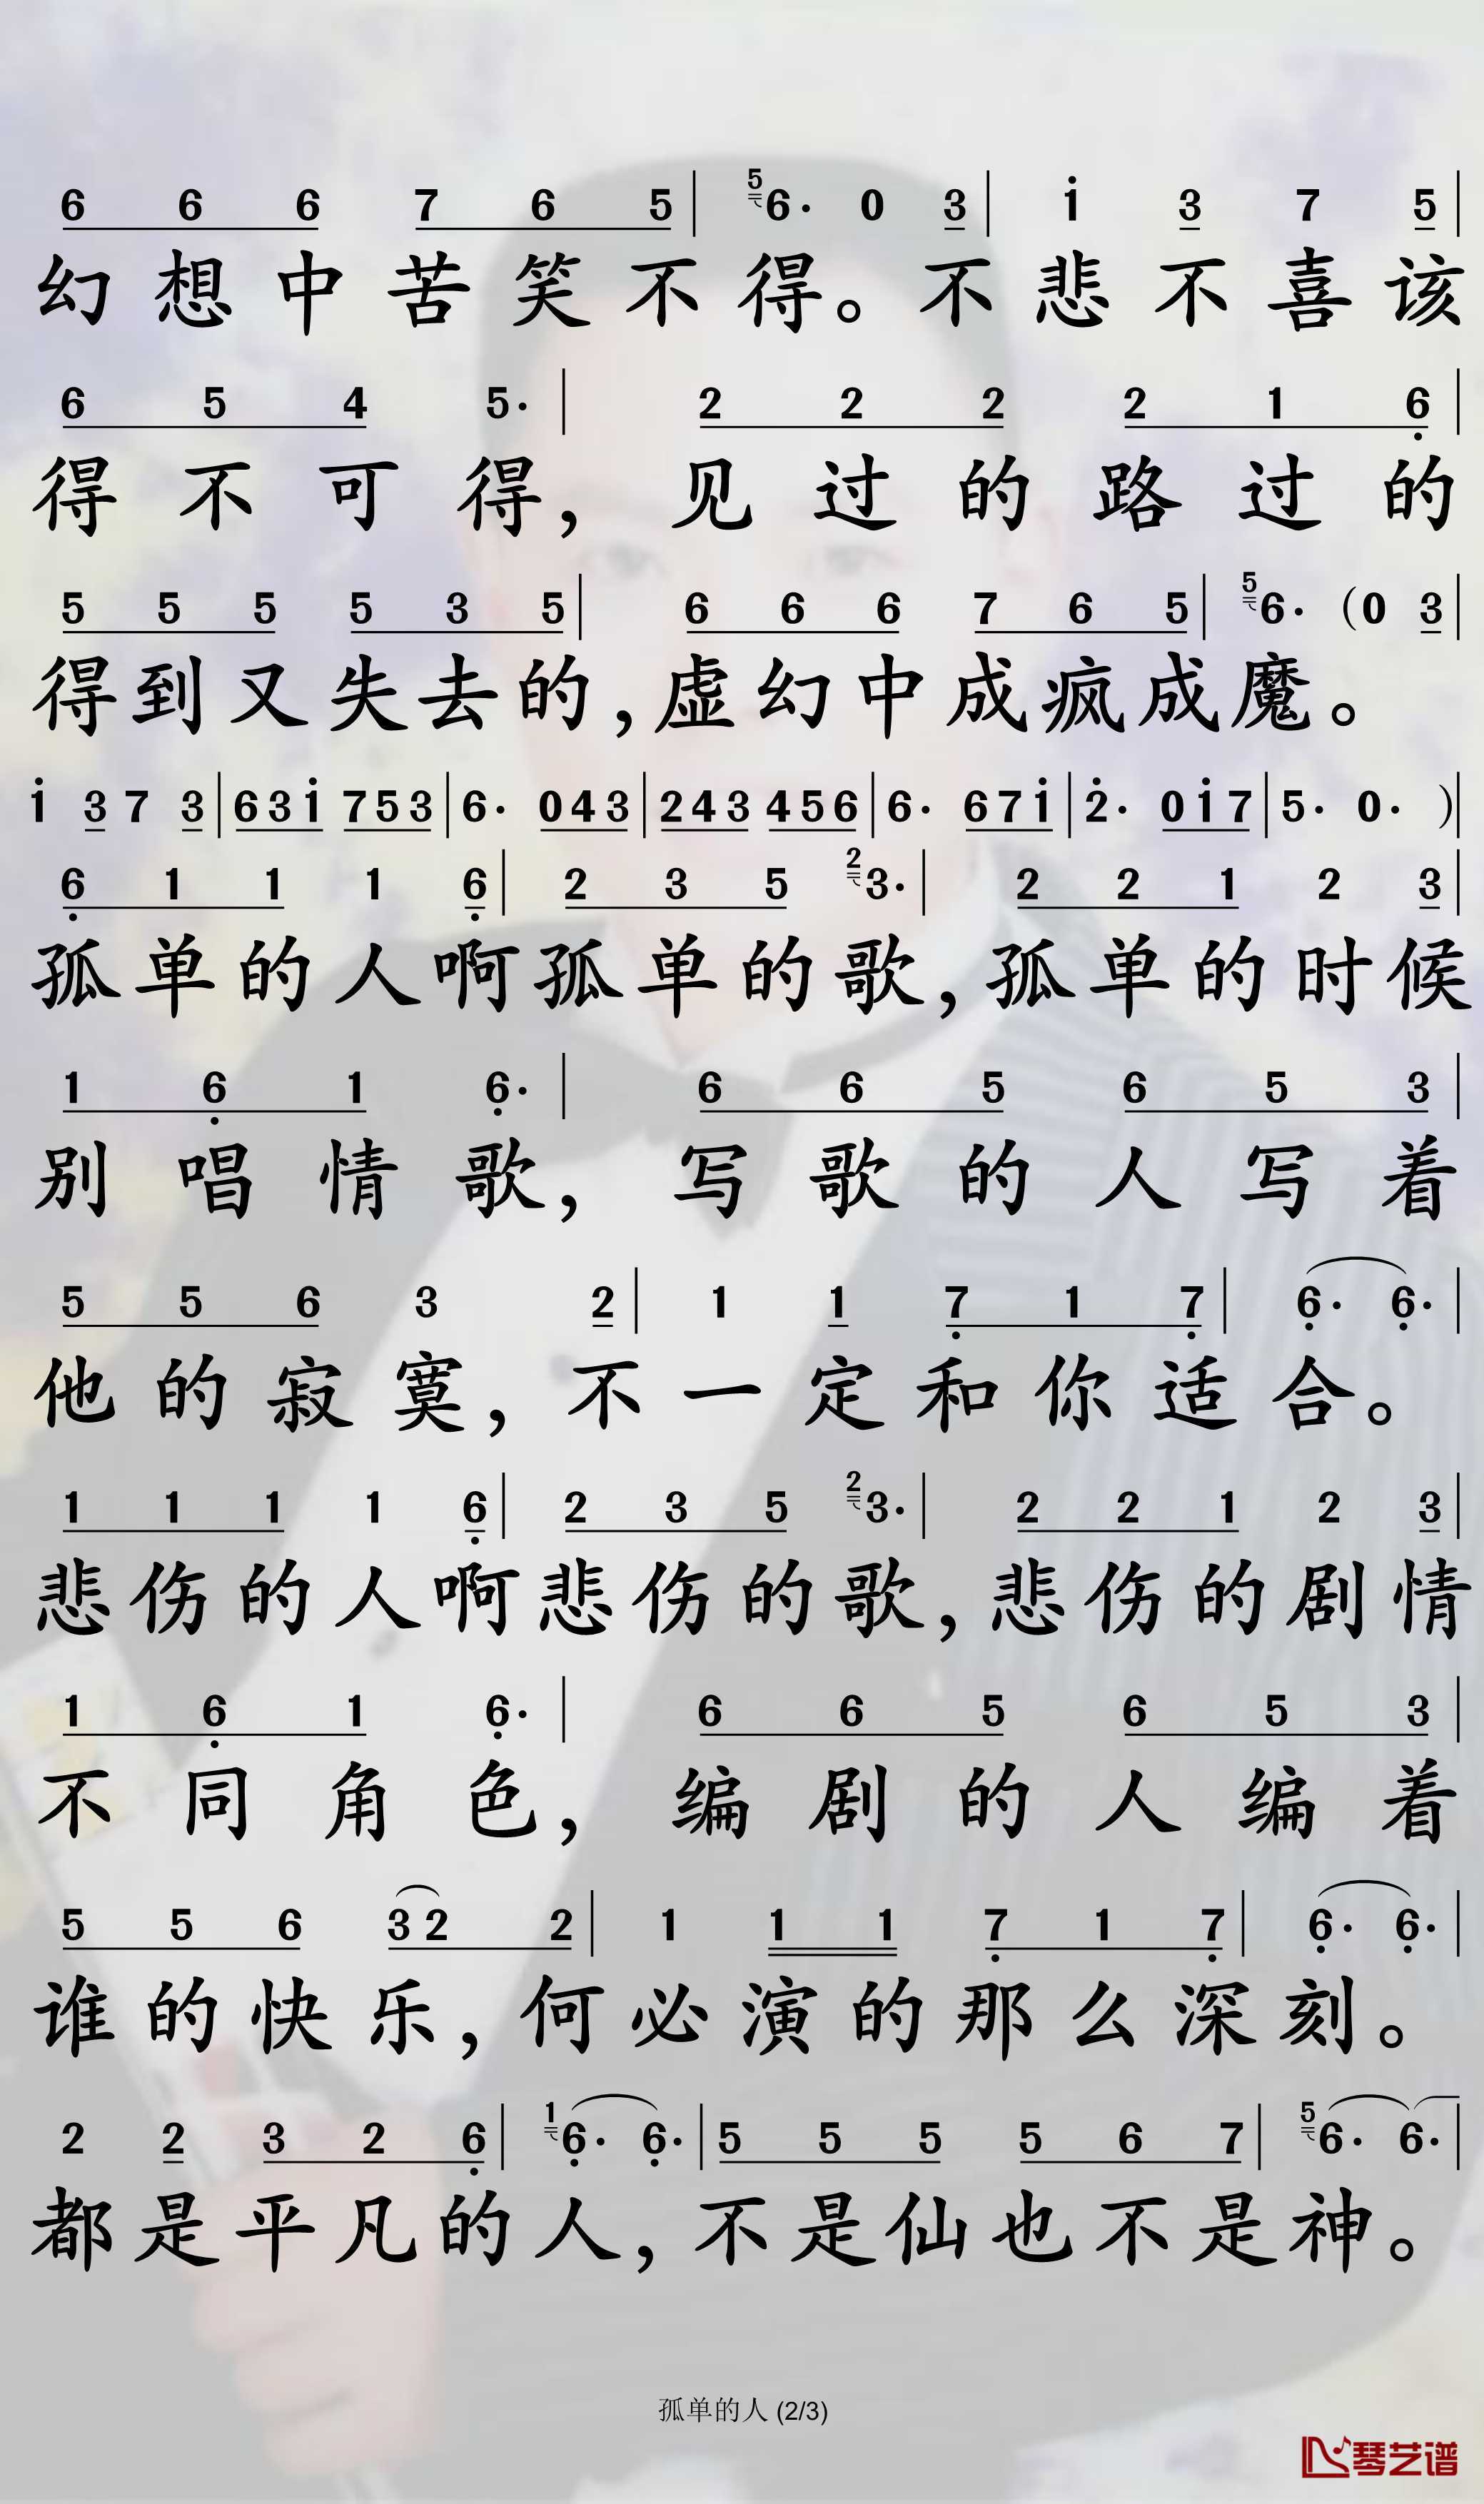 6 6 6 7 6 5 | 5 6· 0 3 | 1 3 7 5 |
幻想中苦笑不得。不悲不喜该
6 5 4 5· | 2 2 2 2 1 6 |
得不可得，见过的路过的
5 5 5 5 3 5 | 6 6 6 7 6 5 | 5 6· (0 3 |
得到又失去的，虚幻中成疯成魔。
1 3 7 3 | 6 3 1 7 5 3 | 6· 0 4 3 | 2 4 3 4 5 6 | 6· 6 7 1 | 2· 0 1 7 | 5· 0· )|
6 1 1 1 6 | 2 3 5 2 3· | 2 2 1 2 3 |
孤单的人啊孤单的歌，孤单的时候
1 6 1 6· | 6 6 5 6 5 3 |
别唱情歌，写歌的人写着
5 5 6 3 2 | 1 1 7 1 7 | 6· 6· |
他的寂寞，不一定和你适合。
1 1 1 1 6 | 2 3 5 2 3· | 2 2 1 2 3 |
悲伤的人啊悲伤的歌，悲伤的剧情
1 6 1 6· | 6 6 5 6 5 3 |
不同角色，编剧的人编着
5 5 6 3 2 2 | 1 1 1 7 1 7 | 6· 6· |
谁的快乐，何必演的那么深刻。
2 2 3 2 6 | 1 6· 6· | 5 5 5 5 6 7 | 5 6· 6· |
都是平凡的人，不是仙也不是神。
孤单的人 (2/3)
琴艺谱